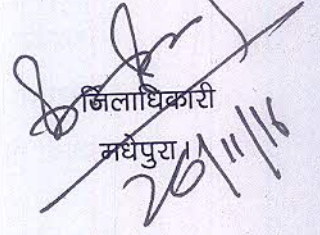 जिलाधिकारी
मधेपुरा।
26/11/16